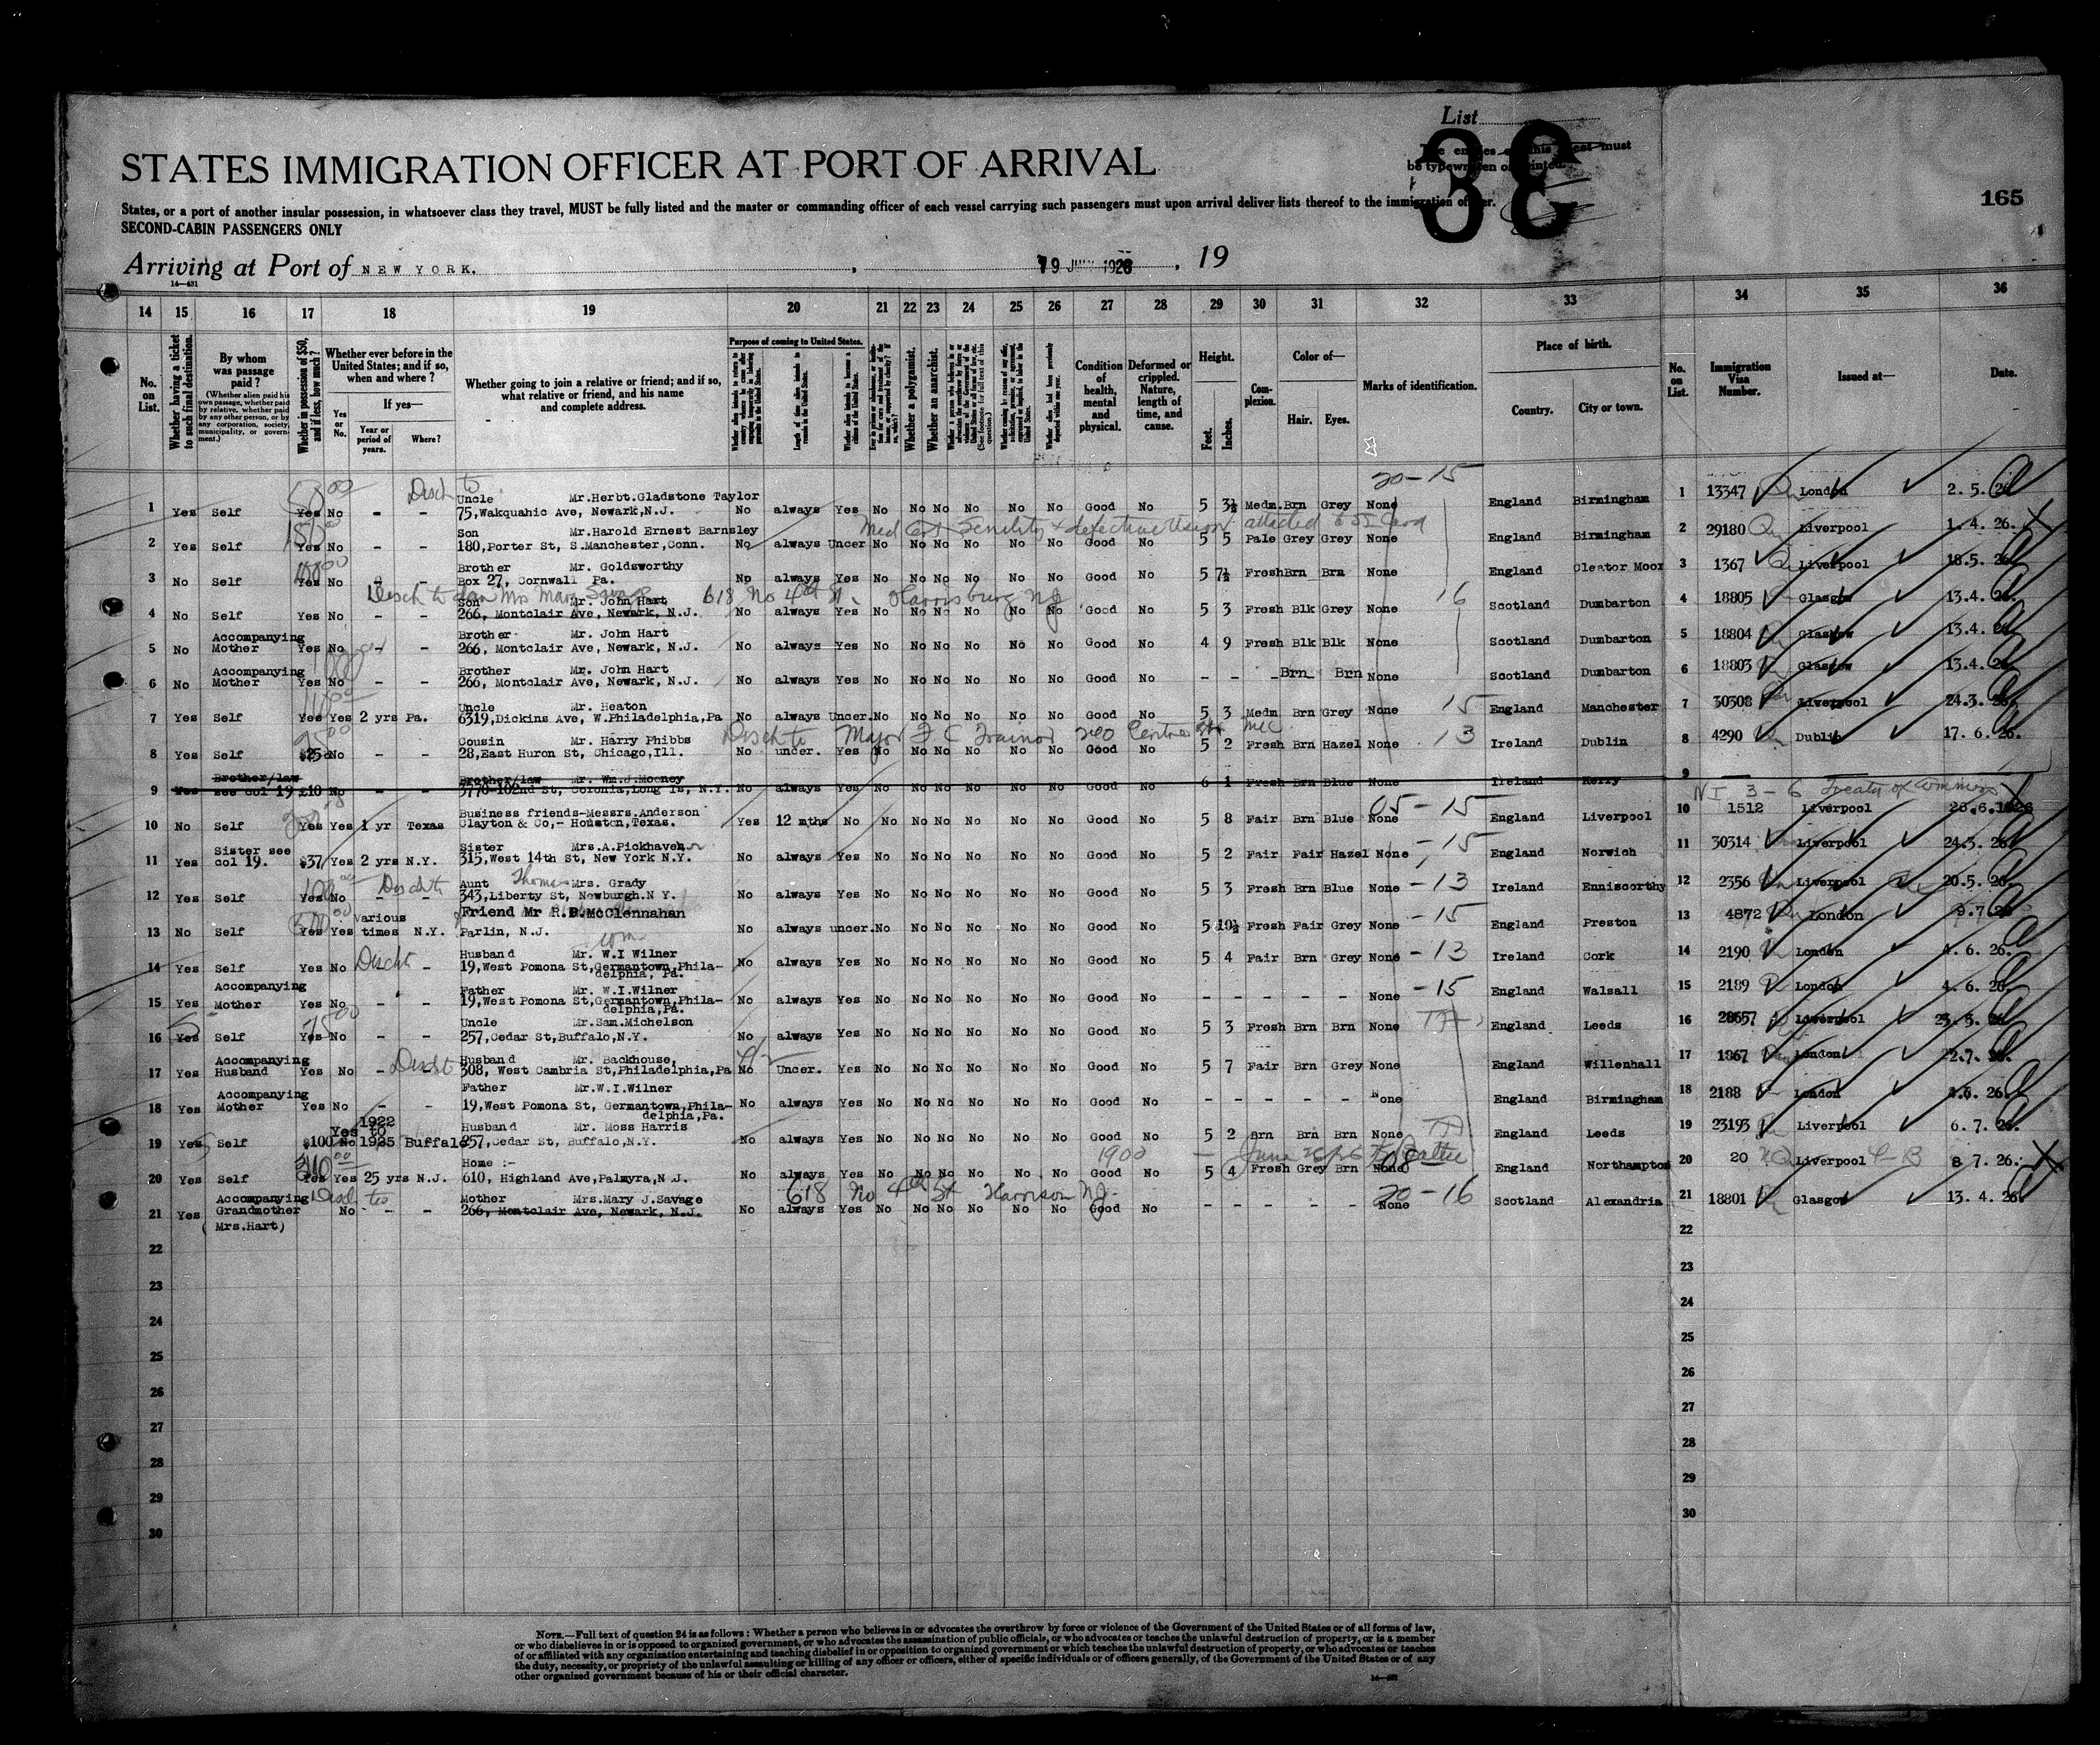 List
38
The entries on this sheet must
be typewritten or printed.
STATES IMMIGRATION OFFICER AT PORT OF ARRIVAL
165
States, or a port of another insular possession, in whatsoever class they travel, MUST be fully listed and the master or commanding officer of each vessel carrying such passengers must upon arrival deliver lists thereof to the immigration officer.
SECOND-CABIN PASSENGERS ONLY
Arriving at Port of NEW YORK. , 19 1926 , 19
14 15 16 17 18 19 20 21 22 23 24 25 26 27 28 29 30 31 32 33 34 35 36
No. on List.
Whether having a ticket to such final destination.
By whom was passage paid?
(Whether alien paid his own passage, whether paid by relative, whether paid by any other person, or by any corporation, society, municipality, or government.)
Whether in possession of $50, and if less, how much?
Whether ever before in the United States; and if so, when and where?
Yes or No.
If yes—
Year or period of years.
Where?
Whether going to join a relative or friend; and if so, what relative or friend, and his name and complete address.
Purpose of coming to United States.
Length of time alien intends to remain in the United States.
Whether a polygamist.
Whether an anarchist.
Condition of health, mental and physical.
Deformed or crippled. Nature, length of time, and cause.
Height.
Feet. Inches.
Complexion.
Color of—
Hair. Eyes.
Marks of identification.
Place of birth.
Country. City or town.
No. on List.
Immigration Visa Number.
Issued at—
Date.
20-15
Uncle Mr.Herbt.Gladstone Taylor
1 Yes Self Yes No - - 75,Wakquahic Ave, Newark,N.J. No always Yes No No No No No No Good No 5 3½ Medm.Brn Grey None England Birmingham 1 13347 London 2. 5. 26
Son Mr.Harold Ernest Barnsley
Med Cert Senility & defective vision attached to SI Card
2 Yes Self Yes No - - 180,Porter St, S.Manchester,Conn. No always Uncer No No No No No No Good No 5 5 Pale Grey Grey None England Birmingham 2 29180 Liverpool 1. 4. 26.
Brother Mr. Goldsworthy
3 No Self Yes No - - Box 27, Cornwall Pa. No always Yes No No No No No No Good No 5 7½ Fresh Brn Brn None England Cleator Moor 3 1367 Liverpool 18.5. 26
618 No 4th St. Harrisburg NJ 16
Son Mr. John Hart
4 No Self Yes No - - 266, Montclair Ave, Newark, N.J. No always Yes No No No No No No Good No 5 3 Fresh Blk Grey None Scotland Dumbarton 4 18805 Glasgow 13.4. 26
Accompanying Brother Mr. John Hart
5 No Mother Yes No - - 266, Montclair Ave, Newark, N.J. No always Yes No No No No No No Good No 4 9 Fresh Blk Blk None Scotland Dumbarton 5 18804 Glasgow 13.4. 26
Accompanying Brother Mr. John Hart
6 No Mother Yes No 266, Montclair Ave, Newark, N.J. No always Yes No No No No No No Good No - - - Brn Brn None Scotland Dumbarton 6 18803 Glasgow 13.4. 26
Uncle Mr. Heaton
7 Yes Self Yes Yes 2 yrs Pa. 6319,Dickins Ave, W.Philadelphia,Pa No always Uncer.No No No No No No Good No 5 3 Medm Brn Grey None 15 England Manchester 7 30308 Liverpool 24.3. 26
Cousin Mr. Harry Phibbs
8 Yes Self $25 No - - 28,East Huron St, Chicago,Ill. No uncer. Yes No No No No No No Good No 5 2 Fresh Brn Hazel None 13 Ireland Dublin 8 4290 Dublin 17. 6. 26.
Brother/law Brother/law Mr. Wm.J.Mooney
9 Yes see col 19 £10 No - - 3770-102nd St, Colonia,Long Is, N.Y. No always Yes No No No No No No Good No 6 1 Fresh Brn Blue None Ireland Kerry 9
NI 3-6 Treaty of Commerce
05-15
Business friends-Messrs.Anderson
10 No Self Yes Yes 1 yr Texas Clayton & Co,- Houston,Texas. Yes 12 mths No No No No No No No Good No 5 8 Fair Brn Blue None England Liverpool 10 1512 Liverpool 26.6.1926
Sister see Sister Mrs.A.Pickhaven
11 Yes col 19. $37 Yes 2 yrs N.Y. 315,West 14th St, New York N.Y. No always Yes No No No No No No Good No 5 2 Fair Fair Hazel None -15 England Norwich 11 30314 Liverpool 24.3. 26
Aunt Mrs. Grady
12 Yes Self Yes No - - 343,Liberty St, Newburgh.N Y. No always Yes No No No No No No Good No 5 3 Fresh Brn Blue None -13 Ireland Enniscorthy 12 2356 Liverpool 20.5. 26
various Friend Mr R.B.McClennahan
13 No Self Yes Yes times N.Y. Parlin, N.J. No always uncer.No No No No No No Good No 5 10½ Fresh Fair Grey None -15 England Preston 13 4872 London 9.7.26
Husband Mr. W.I Wilner
14 Yes Self Yes No - 19,West Pomona St,Germantown,Phila-
delphia, Pa. No always Yes No No No No No No Good No 5 4 Fair Brn Grey None -13 Ireland Cork 14 2190 London 4. 6. 26.
Accompanying Father Mr. W.I.Wilner
15 Yes Mother Yes No - - 19,West Pomona St,Germantown,Phila-
delphia,Pa. No always Yes No No No No No No Good No - - - - - None -15 England Walsall 15 2189 London 4. 6. 26
Uncle Mr.Sam.Michelson
16 Yes Self Yes No - - 257,Cedar St,Buffalo,N.Y. No always Yes No No No No No No Good No 5 3 Fresh Brn Brn None England Leeds 16 28657 Liverpool 25.5. 26
Accompanying Husband Mr. Backhouse,
17 Yes Husband Yes No - - 308, West Cambria St,Philadelphia,Pa No Uncer. Yes No No No No No No Good No 5 7 Fair Brn Grey None England Willenhall 17 1867 London 2.7. 26
Accompanying Father Mr.W.I.Wilner
18 Yes Mother Yes No - - 19,West Pomona St, Germantown,Phila-
delphia,Pa. No always Yes No No No No No No Good No - - - - - None England Birmingham 18 2188 London 4.6. 26.
1922
Yes to Husband Mr. Moss Harris
19 Yes Self $100 No 1925 Buffalo 257,Cedar St, Buffalo,N.Y. No always Yes No No No No No No Good No 5 2 Brn Brn Brn None England Leeds 19 23193 Liverpool 6. 7. 26.
1900
Home :-
20 Yes Self Yes Yes 25 yrs N.J. 610, Highland Ave,Palmyra,N.J. No always Yes No No No No No No Good No 5 4 Fresh Grey Brn None England Northampton 20 20 Liverpool 8 7. 26.
618 No 4th St Harrison NJ. 20-16
Accompanying Mother Mrs.Mary J.Savage
21 Yes Grandmother No - - 266, Montclair Ave, Newark, N.J. No always Yes No No No No No No Good No - - - - - None Scotland Alexandria 21 18801 Glasgow 13. 4. 26.
(Mrs.Hart)
22 22
23 23
24 24
25 25
26 26
27 27
28 28
29 29
30 30
NOTE.—Full text of question 24 is as follows: Whether a person who believes in or advocates the overthrow by force or violence of the Government of the United States or of all forms of law,
or who disbelieves in or is opposed to organized government, or who advocates the assassination of public officials, or who advocates or teaches the unlawful destruction of property, or is a member
of or affiliated with any organization entertaining and teaching disbelief in or opposition to organized government or which teaches the unlawful destruction of property, or who advocates or teaches
the duty, necessity, or propriety of the unlawful assaulting or killing of any officer or officers, either of specific individuals or of officers generally, of the Government of the United States or of any
other organized government because of his or their official character.